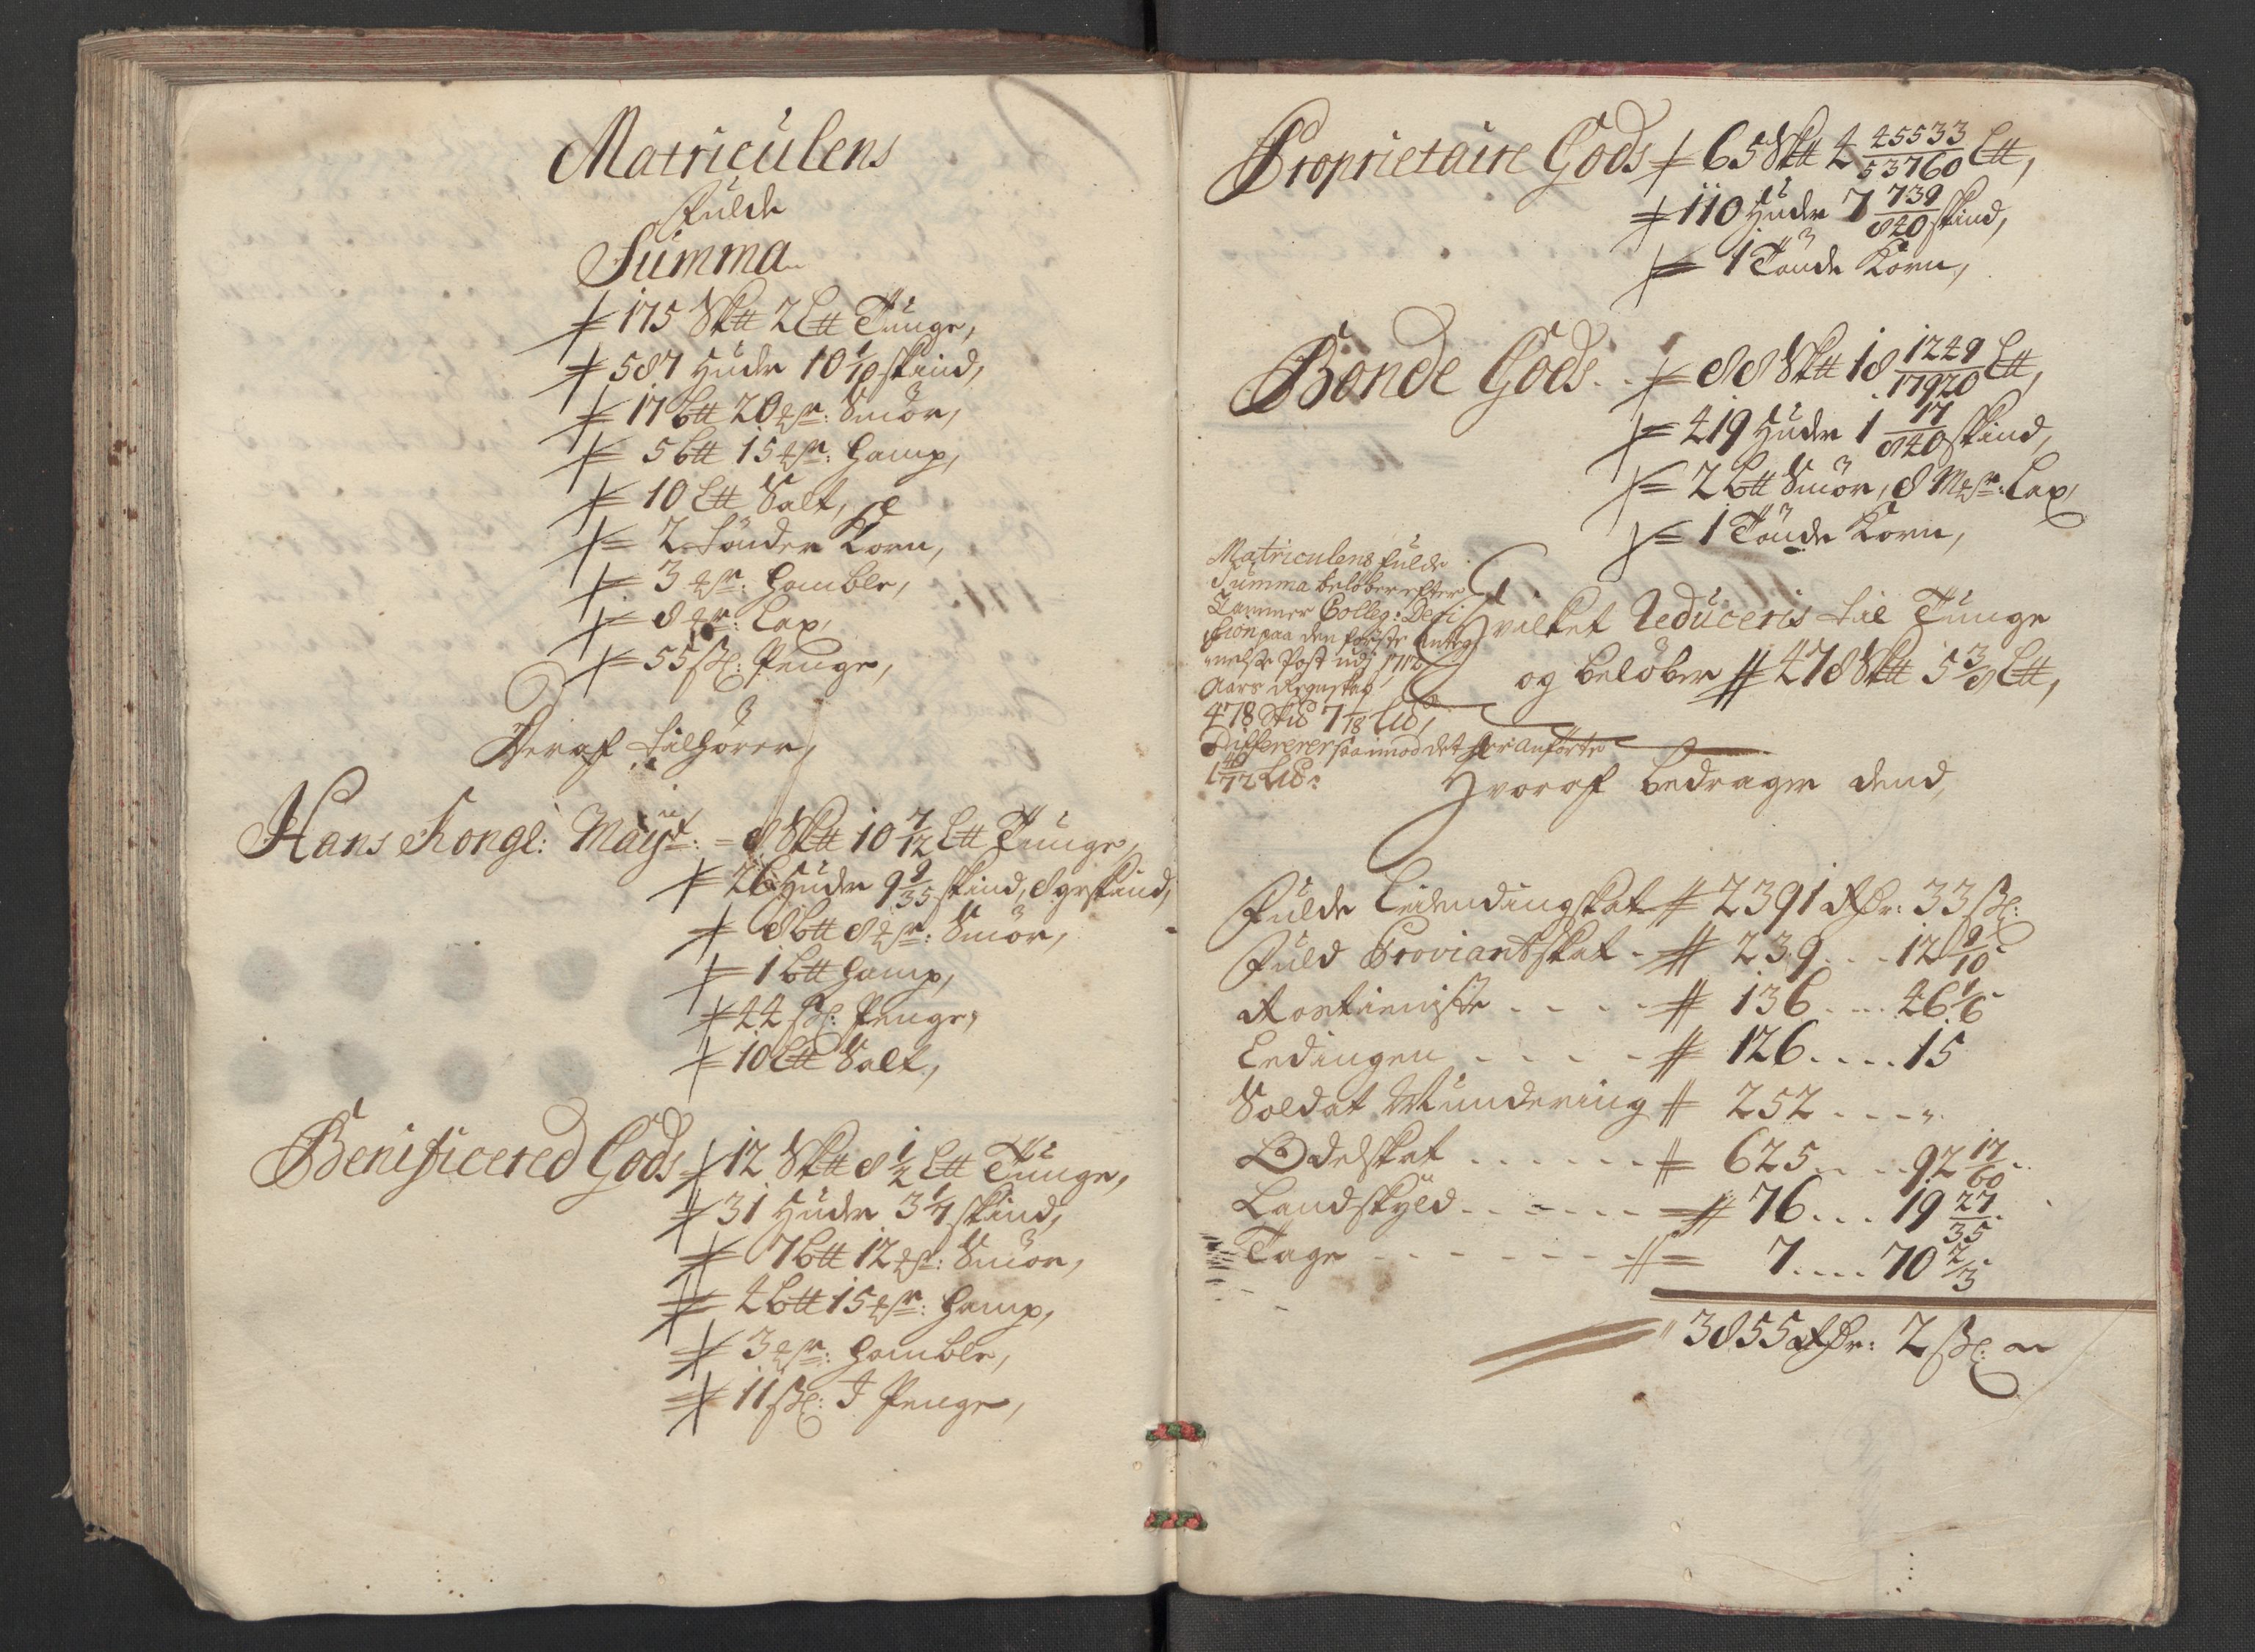 Matriculens
Fulde
Summa
175 Sk℔ 2 L℔ Tunge,
587 Huder 10 1/10 skind,
17 b℔ 20 mrk: Smör,
5 b℔ 15 mrk: Hamp,
10 L℔ Salt,
2 Tönder Korn,
3 mrk: Hamble,
8 mrk: Lax,
55 sk: Penge,
Deraf tilhörer,
Hans Kongl: Mayst: = 8 Sk℔ 10 7/12 L℔ Tunge,
26 Huder 9 9/35 skind, 8 grskind,
8 b℔ 8 mrk: Smör,
1 b℔ Hamp,
44 sk: Penge,
10 L℔ Salt,
Benificered Gods 12 Sk℔ 8 1/2 L℔ Tunge,
31 Huder 3 1/7 skind,
7 b℔ 12 mrk: Smör,
4 b℔ 15 mrk: Hamp,
3 mrk: Hamble,
11 sk: I Penge,
Proprietaire Gods 65 Sk℔ 4 45533/53760 L℔,
110 Huder 7 739/840 skind,
1 Tönde Korn,
Bonde Gods . . 88 Sk℔ 18 1249/17920 L℔,
419 Huder 1 17/840 skind,
2 b℔ Smör, 8 Mrk: Lax,
1 Tönde Korn,
Matriculens fulde
Summa beløber efter
Cammer Colleg: Deci
sion paa den første Anteg
nelse Post udj 1712
Aars Regnskab
478 Sk℔ 7 1/18 L℔,
Differerer saa imod det her anförte
1 49/72 L℔:
Hvilket Reduceris til Tunge
og belöber 478 Sk℔ 5 3/8 L℔,
Hvoraf bedrager dend,
Fulde Leilendingskat 2391 Rdr: 33 sk:
Fuld Proviantskat . 239 . . . 12 9/10
Rostieniste . . . . 136 . . . 46 1/6
Ledingen . . . . 126 . . . . 15
Soldat Mundering 252 . . . "
Odelskat . . . . . . 625 . . . 92 17/60
Landskyld . . . . . 76 . . . 19 27/35
Tage . . . . . . . 7 . . . . 70 2/5
3855 Rdr: 2 sk: